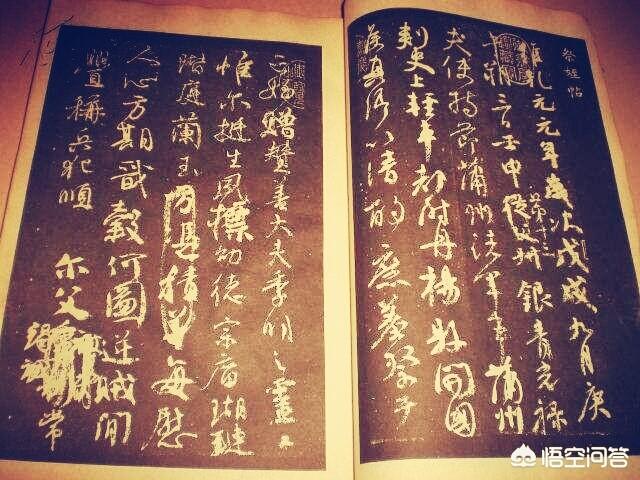 祭姪帖
維乾元元年歲次戊戌九月庚
午朔三日壬申第十三叔銀青光祿
夫使持節蒲州諸軍事蒲州
刺史上輕車都尉丹楊縣開國
侯真卿以清酌庶羞祭于
亡姪贈贊善大夫季明之靈曰
惟尔挺生夙標幼德宗廟瑚璉
階庭蘭玉方憑積善每慰
人心方期戩穀何圖逆賊間
釁稱兵犯順 尔父 常
悟空问答